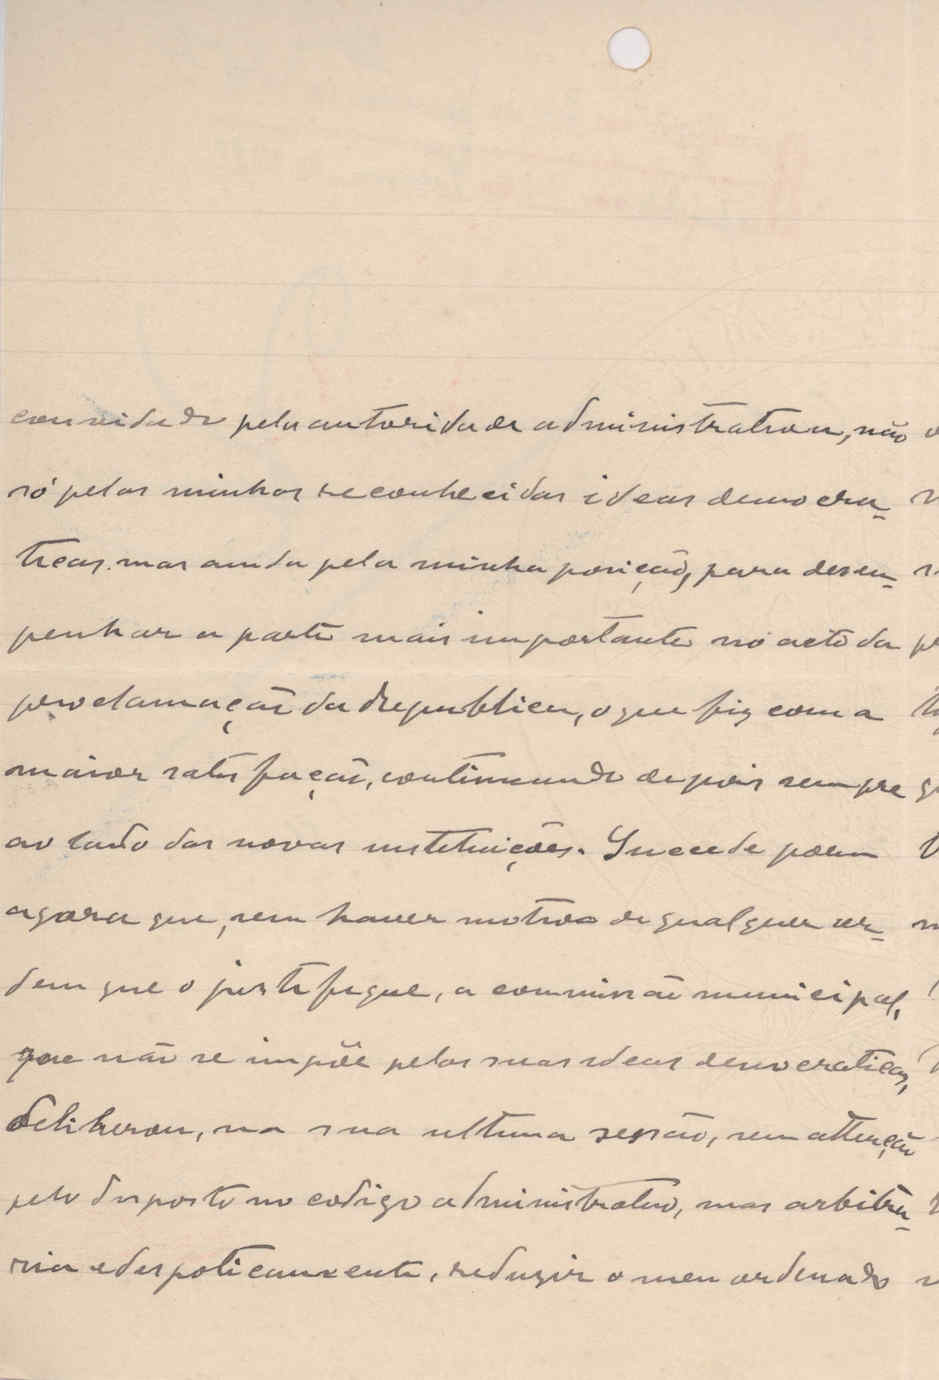 convidado pela autoridade administrativa, não
só pelas minhas reconhecidas ideas democra-
ticas, mas ainda pela minha posição, para desem-
penhar a parte mais importante no acto da
proclamação da Republica, o que fiz com a
maior satisfação, continuando depois sempre
ao lado das novas instituições. Succede porem
agora que, sem haver motivo de qualquer or-
dem que o justifique, a commissão municipal,
que não se impõe pelas suas ideas democraticas,
deliberou, na sua ultima sessão, sem attenção
pelo disposto no codigo administrativo, mas arbitra-
ria e despoticamente, reduzir o meu ordenado